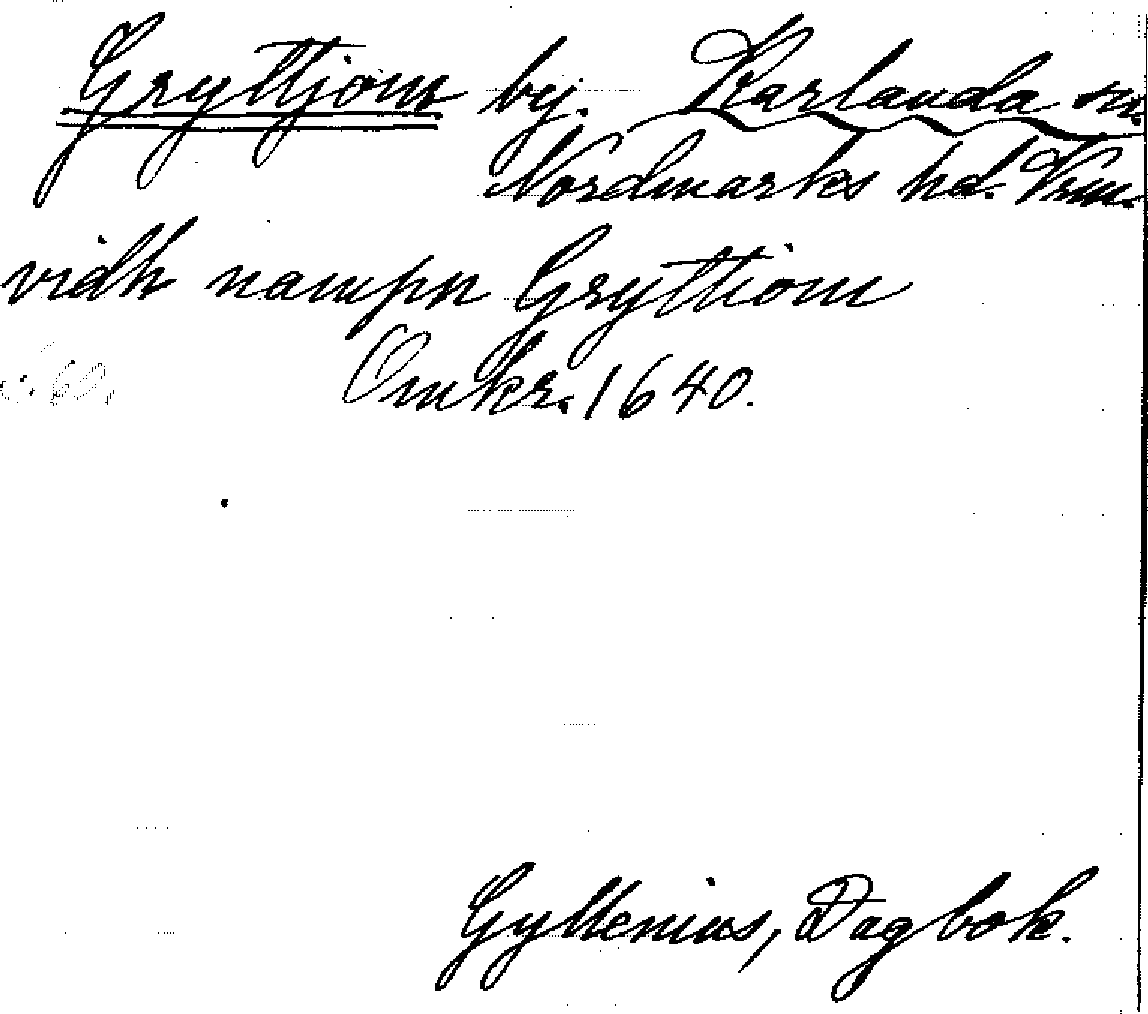 Gryttjom by. Karlanda sn.
Nordmarks hd. Vrm.
vidh nampn Gryttiom
s. 60. Omkr. 1640.
Gyllenius, Dagbok.